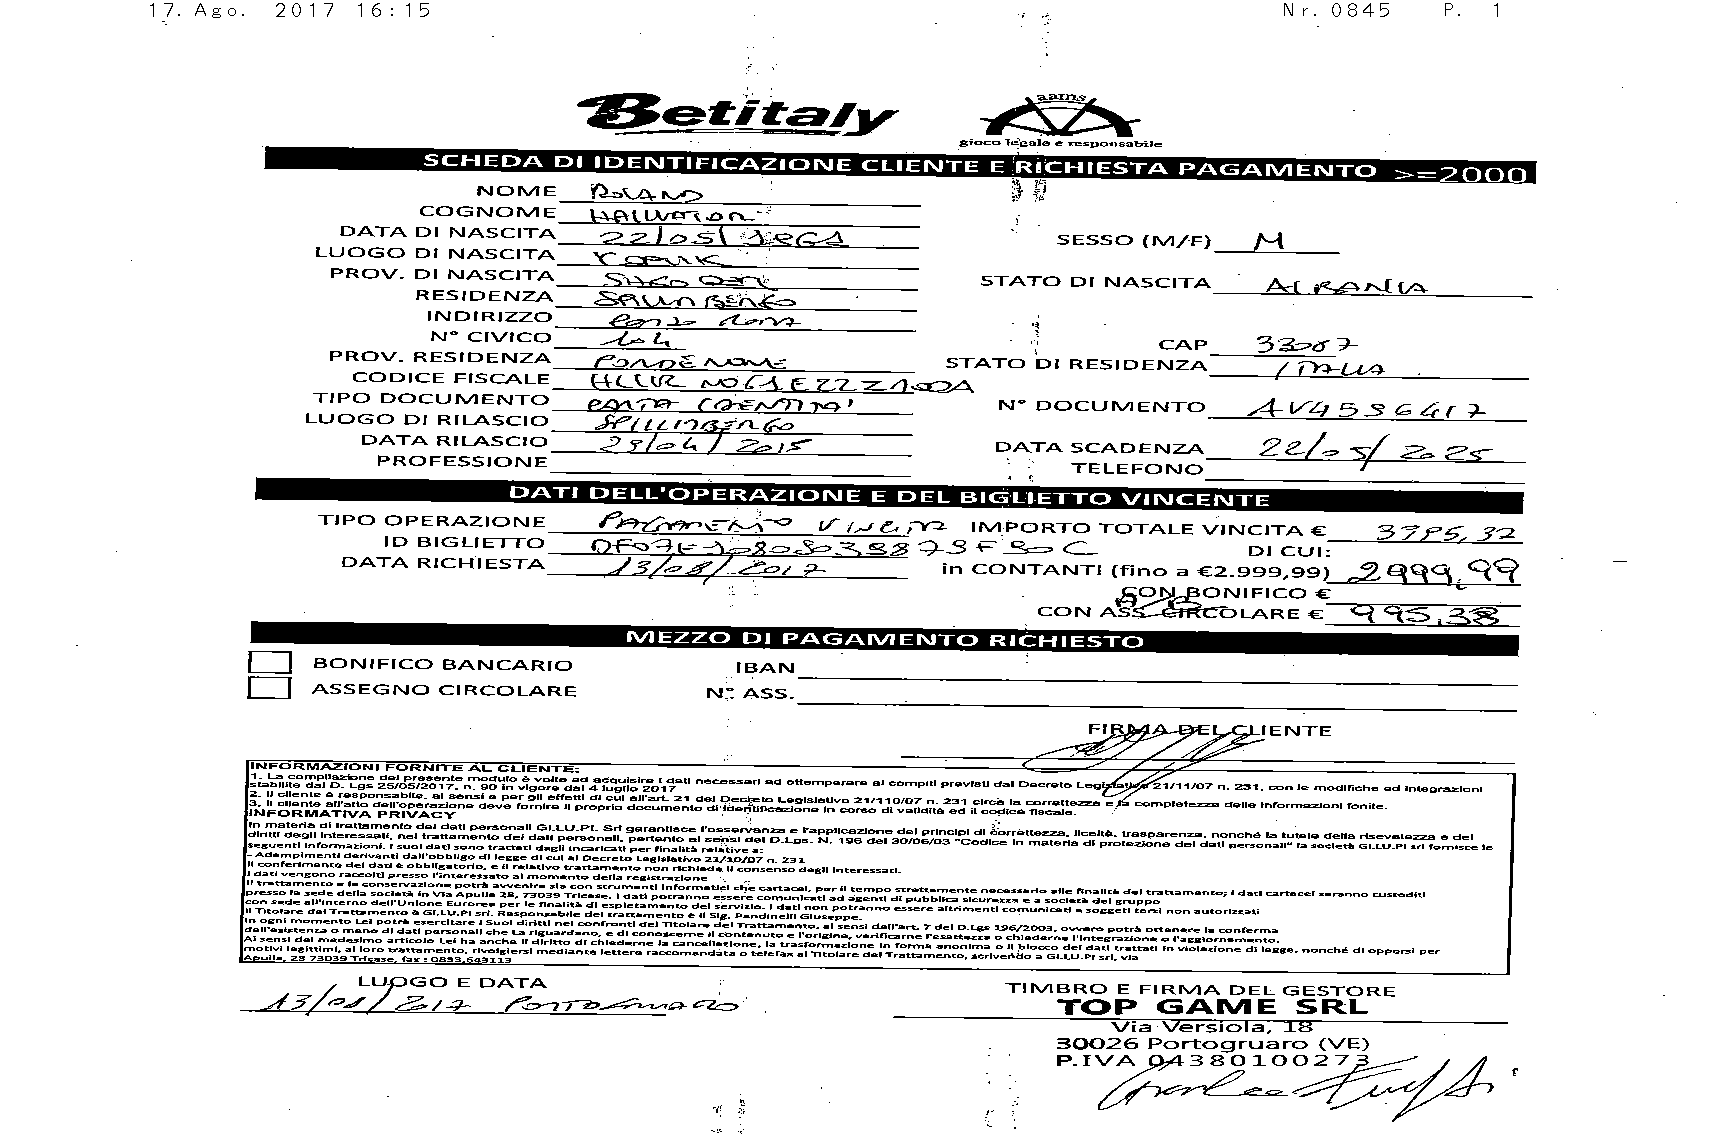 17. Ago. 2017 16:15 Nr. 0845 P. 1
Betitaly
aams
gioco legale e responsabile
SCHEDA DI IDENTIFICAZIONE CLIENTE E RICHIESTA PAGAMENTO >=2000
NOME ROLAND
COGNOME
DATA DI NASCITA 22/05/ SESSO (M/F) M
LUOGO DI NASCITA
PROV. DI NASCITA STATO DI NASCITA ALBANIA
RESIDENZA
INDIRIZZO
N° CIVICO 104 CAP
PROV. RESIDENZA PORDENONE STATO DI RESIDENZA ITALIA
CODICE FISCALE
TIPO DOCUMENTO N° DOCUMENTO
LUOGO DI RILASCIO SPILIMBERGO
DATA RILASCIO DATA SCADENZA 22/05/2025
PROFESSIONE TELEFONO
DATI DELL'OPERAZIONE E DEL BIGLIETTO VINCENTE
TIPO OPERAZIONE PAGAMENTO VINCITA IMPORTO TOTALE VINCITA €
ID BIGLIETTO DI CUI:
DATA RICHIESTA 13/08/2017 in CONTANTI (fino a €2.999,99) 2999,99
CON BONIFICO €
CON ASS. CIRCOLARE € 995,38
MEZZO DI PAGAMENTO RICHIESTO
BONIFICO BANCARIO IBAN
ASSEGNO CIRCOLARE N° ASS.
FIRMA DEL CLIENTE
INFORMAZIONI FORNITE AL CLIENTE:
1. La compilazione del presente modulo è volte ad acquisire i dati necessari ad ottemperare ai compiti previsti dal Decreto Legislativo 21/11/07 n. 231, con le modifiche ed integrazioni
stabilite dal D. Lgs 25/05/2017, n. 90 in vigore dal 4 luglio 2017
2. Il cliente è responsabile, ai sensi e per gli effetti di cui all'art. 21 del Decreto Legislativo 21/110/07 n. 231 circa la correttezza e la completezza delle informazioni fonite.
3. Il cliente all'atto dell'operazione deve fornire il proprio documento di identificazione in corso di validità ed il codice fiscale.
INFORMATIVA PRIVACY
In materia di trattamento dei dati personali GI.LU.PI. Srl garantisce l'osservanza e l'applicazione dei principi di correttezza, liceità, trasparenza, nonché la tutela della risevatezza e dei
diritti degli interessati, nel trattamento dei dati personali, pertanto ai sensi del D.Lgs. N. 196 del 30/06/03 "Codice in materia di protezione dei dati personali" la società GI.LU.PI srl fornisce le
seguenti informazioni. I suoi dati sono trattati dagli incaricati per finalità relative a:
- Adempimenti derivanti dall'obbligo di legge di cui al Decreto Legislativo 21/10/07 n. 231
Il conferimento dei dati è obbligatorio, e il relativo trattamento non richiede il consenso degli interessati.
I dati vengono raccolti presso l'interessato al momento della registrazione
Il trattamento e la conservazione potrà avvenire sia con strumenti informatici che cartacei, per il tempo strettamente necessario alle finalità del trattamento; i dati cartacei saranno custoditi
presso la sede della società in Via Apulia 28, 73039 Tricase. I dati potranno essere comunicati ad agenti di pubblica sicurezza e a società del gruppo
con sede all'interno dell'Unione Europea per le finalità di espletamento del servizio. I dati non potranno essere altrimenti comunicati a soggeti terzi non autorizzati
Il Titolare del Trattamento è GI.LU.PI srl. Responsabile del trattamento è il Sig. Pandinelli Giuseppe.
In ogni momento Lei potrà esercitare i Suoi diritti nei confronti del Titolare del Trattamento, ai sensi dall'art. 7 del D.Lgs 196/2003, ovvero potrà ottenere la conferma
dell'esistenza o meno di dati personali che La riguardano, e di conoscerne il contenuto e l'origina, verificarne l'esattezza o chiederne l'integrazione o l'aggiornamento.
Ai sensi del medesimo articolo Lei ha anche il diritto di chiederne la cancellazione, la trasformazione in forma anonima o il blocco dei dati trattati in violazione di legge, nonché di opporsi per
motivi legittimi, al loro trattamento, rivolgersi mediante lettera raccomandata o telefax al Titolare del Trattamento, scrivendo a GI.LU.PI srl, via
Apulia, 28 73039 Tricase, fax : 0833,643113
LUOGO E DATA
13/08/2017 PORTOGRUARO
TIMBRO E FIRMA DEL GESTORE
TOP GAME SRL
Via Versiola, 18
30026 Portogruaro (VE)
P.IVA 04380100273